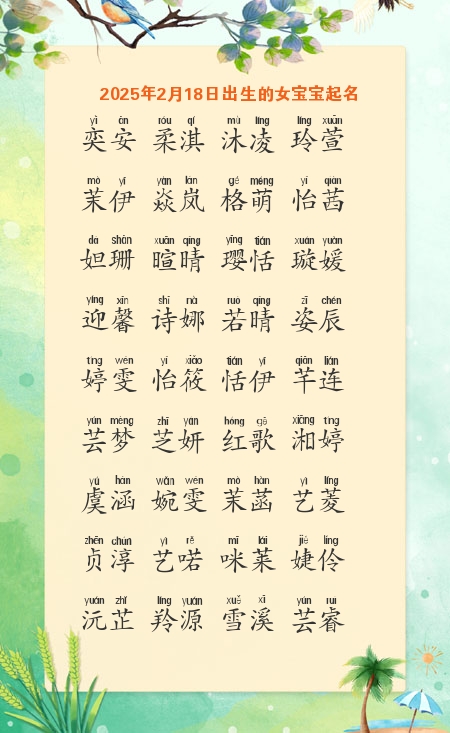 2025年2月18日出生的女宝宝起名
yì ān róu qí mù líng líng xuān
奕安 柔淇 沐凌 玲萱
mò yī yàn lán gé méng yí qiàn
茉伊 焱岚 格萌 怡茜
dá shān xuān qíng yīng tián xuán yuàn
妲珊 暄晴 璎恬 璇媛
yíng xīn shī nà ruò qíng zī chén
迎馨 诗娜 若晴 姿辰
tíng wén yí xiǎo tián yī qiān lián
婷雯 怡筱 恬伊 芊连
yún mèng zhī yán hóng gē xiāng tíng
芸梦 芝妍 红歌 湘婷
yú hán wǎn wén mò hàn yì líng
虞涵 婉雯 茉菡 艺菱
zhēn chún yì rě mī lái jié líng
贞淳 艺喏 咪莱 婕伶
yuán zhǐ líng yuán xuě xī yún ruì
沅芷 羚源 雪溪 芸睿